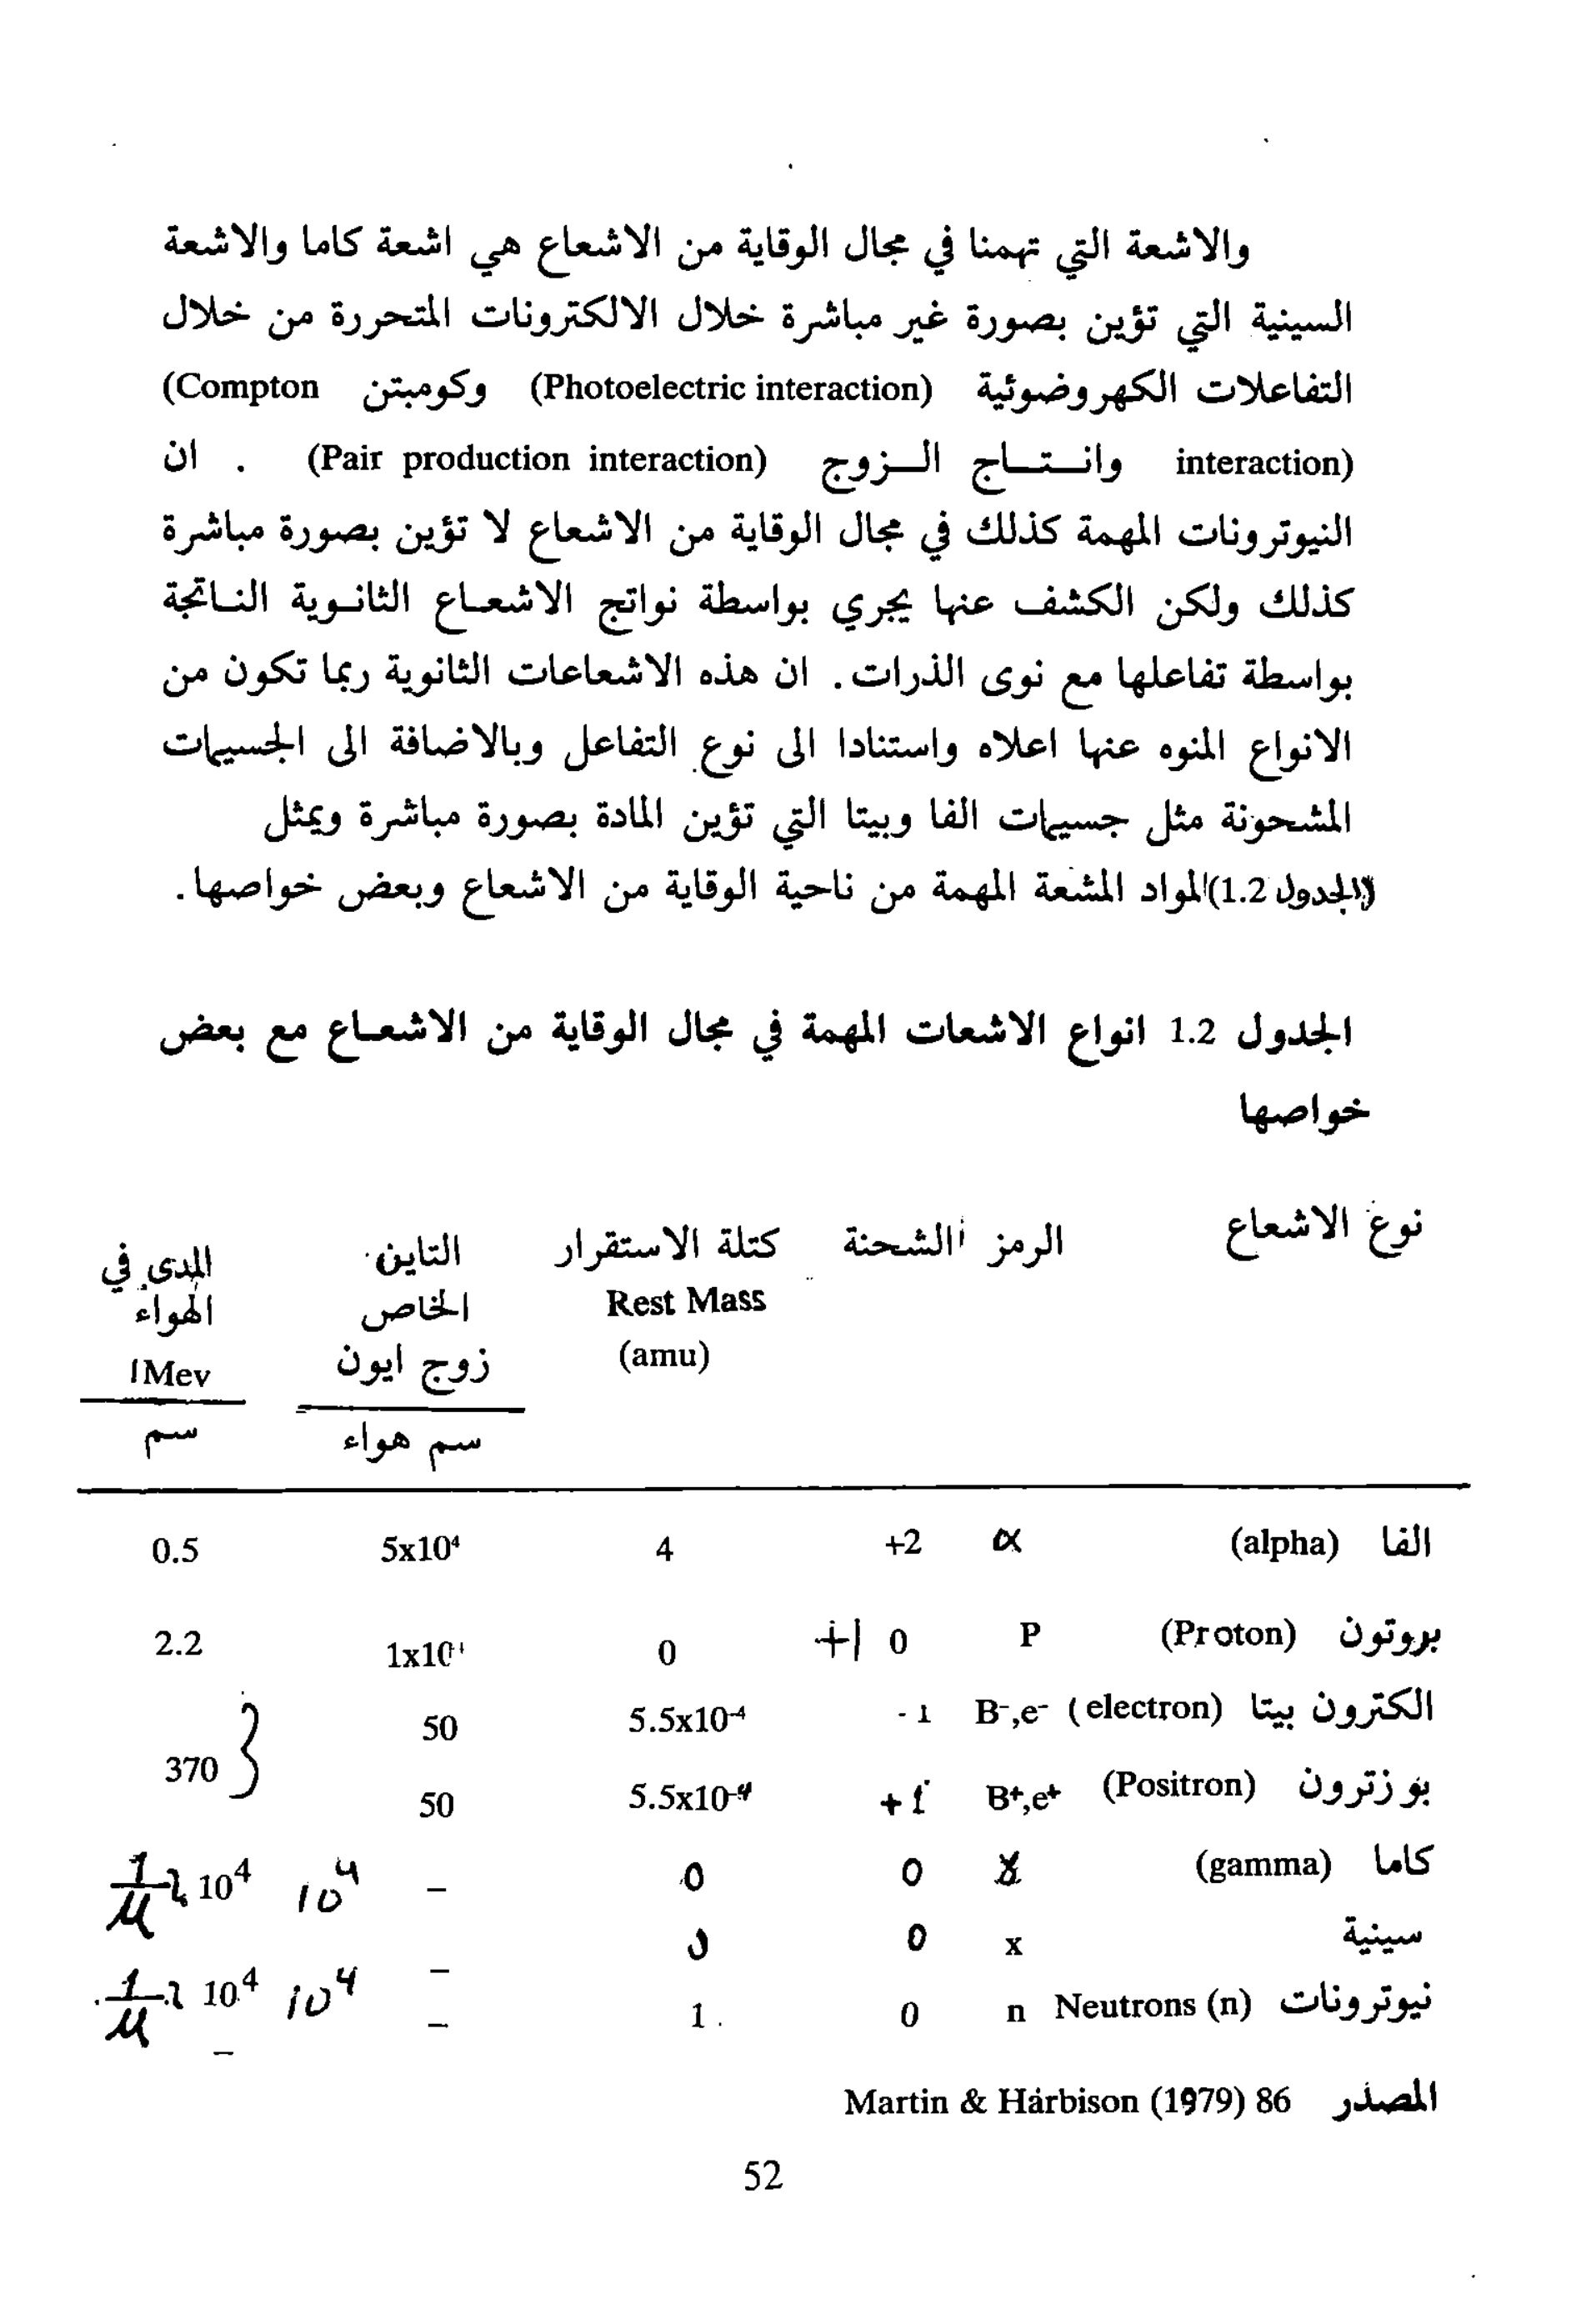 والاشعة التي تهمنا في مجال الوقاية من الاشعاع هي اشعة كاما والاشعة
السينية التي تؤين بصورة غير مباشرة خلال الالكترونات المتحررة من خلال
التفاعلات الكهروضوئية (Photoelectric interaction) وكومبتن (Compton
interaction) وانــتــاج الــزوج (Pair production interaction) . ان
النيوترونات المهمة كذلك في مجال الوقاية من الاشعاع لا تؤين بصورة مباشرة
كذلك ولكن الكشف عنها يجري بواسطة نواتج الاشعـاع الثانـوية النـاتجة
بواسطة تفاعلها مع نوى الذرات. ان هذه الاشعاعات الثانوية ربما تكون من
الانواع المنوه عنها اعلاه واستنادا الى نوع التفاعل وبالاضافة الى الجسيمات
المشحونة مثل جسيمات الفا وبيتا التي تؤين المادة بصورة مباشرة ويمثل
(الجدول 1.2) المواد المشعة المهمة من ناحية الوقاية من الاشعاع وبعض خواصها.
الجدول 1.2 انواع الاشعات المهمة في مجال الوقاية من الاشعـاع مع بعض
خواصها
نوع الاشعاع الرمز الشحنة كتلة الاستقرار التاين المدى في
Rest Mass الخاص الهواء
(amu) زوج ايون 1Mev
سم هواء سم
الفا (alpha) α +2 4 5x10⁴ 0.5
بروتون (Proton) P 0 +1 0 1x10 2.2
الكترون بيتا (electron) B⁻,e⁻ -1 5.5x10⁻⁴ 50
370
بوزترون (Positron) B⁺,e⁺ +1 5.5x10⁻⁴ 50
كاما (gamma) ɣ 0 0 – 10⁴ 10⁴ 1/μ
سينية x 0 0 –
نيوترونات Neutrons (n) n 0 1 – 10⁴ 10⁴ 1/μ
–
المصدر Martin & Harbison (1979) 86
52